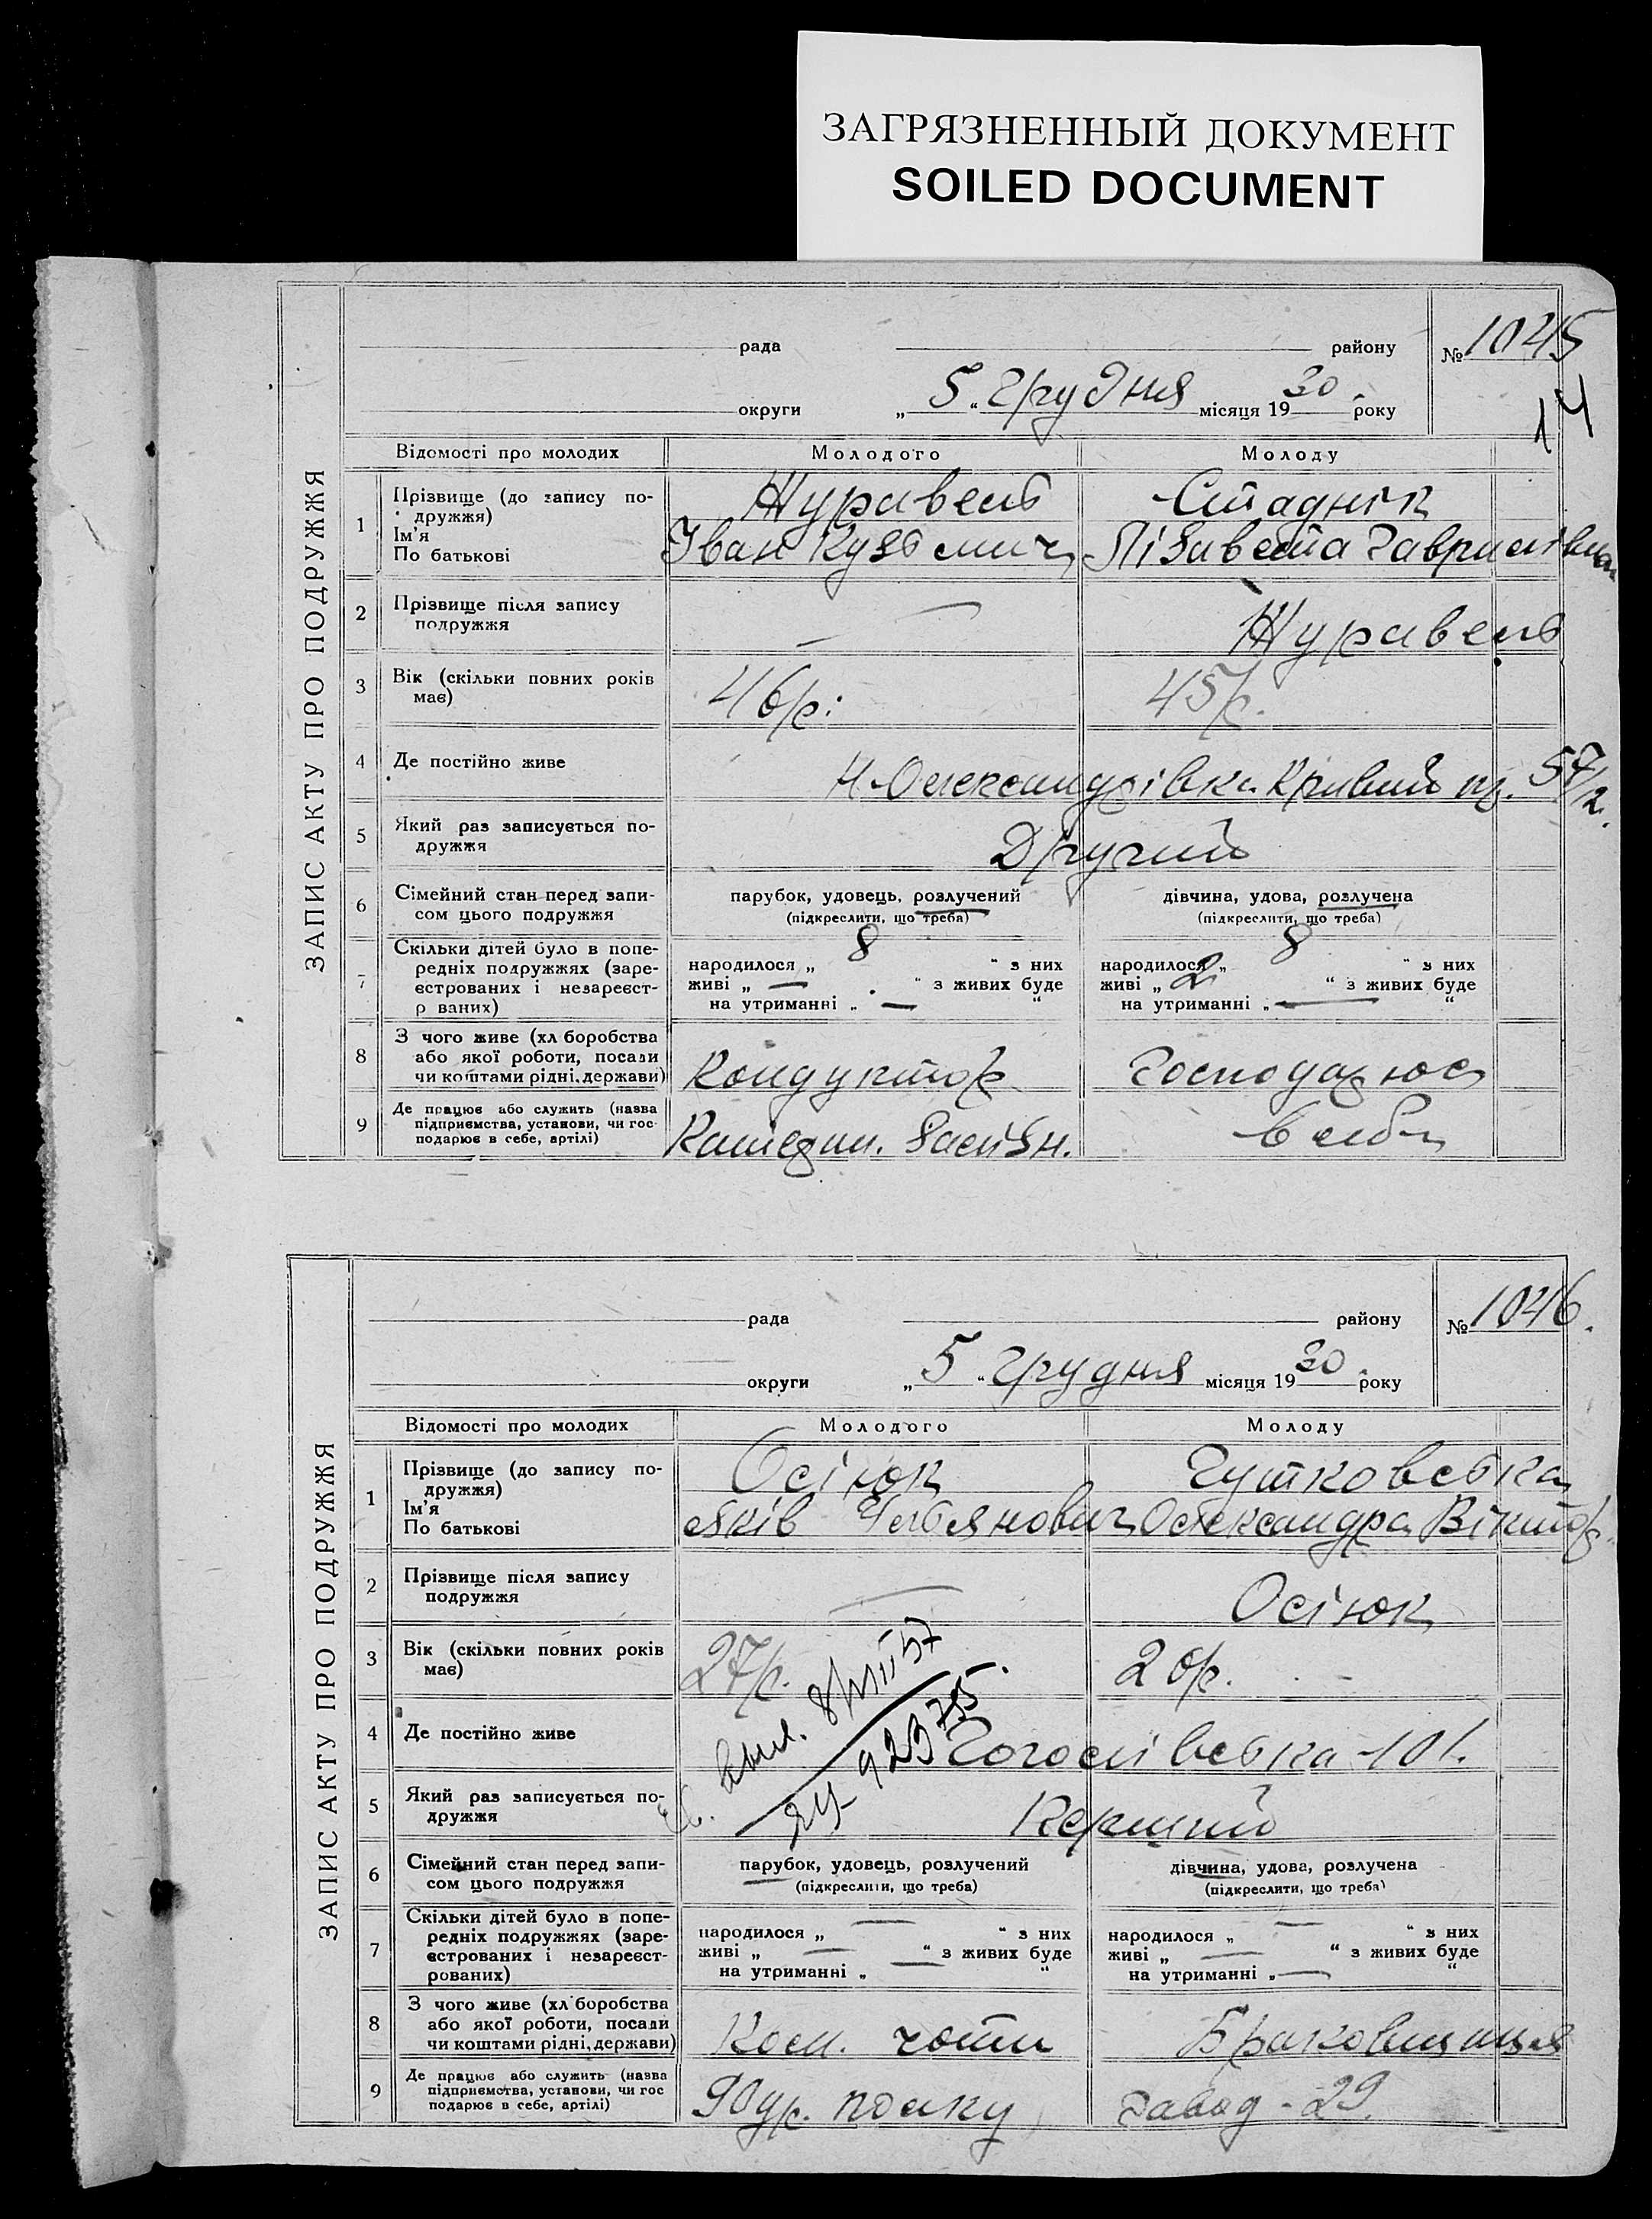 ЗАГРЯЗНЕННЫЙ ДОКУМЕНТ
SOILED DOCUMENT
ЗАПИС АКТУ ПРО ПОДРУЖЖЯ
рада району № 1045
округи „5“ Грудня місяця 1930 року
14
Відомості про молодих Молодого Молоду
1 Прізвище (до запису по-
дружжя)
Ім'я
По батькові
Журавель Стаднік
Іван Кузьмич Лізавета Гаврилівна
2 Прізвище після запису
подружжя
— Журавель
3 Вік (скільки повних років
має)
46 р. 45 р.
4 Де постійно живе
Н-Олександрівка Кривий пр. 57/12.
5 Який раз записується по-
дружжя
Другий
6 Сімейний стан перед запи-
сом цього подружжя
парубок, удовець, розлучений дівчина, удова, розлучена
(підкреслити, що треба) (підкреслити, що треба)
7 Скільки дітей було в попе-
редніх подружжях (заре-
єстрованих і незареєст-
р ваних)
народилося „ 8 “ з них народилося „ 8 “ з них
живі „ — “ з живих буде живі „ 2 “ з живих буде
на утриманні „ — “ на утриманні „ — “
8 З чого живе (хл боробства
або якої роботи, посади
чи коштами рідні, держави)
Кондуктор Господарює
9 Де працює або служить (назва
підприємства, установи, чи гос
подарює в себе, артілі)
в себе
ЗАПИС АКТУ ПРО ПОДРУЖЖЯ
рада району № 1046.
округи „5“ Грудня місяця 1930. року
Відомості про молодих Молодого Молоду
1 Прізвище (до запису по-
дружжя)
Ім'я
По батькові
Осіюк Гутковська
Яків Олександра Віктор.
2 Прізвище після запису
подружжя
— Осіюк
3 Вік (скільки повних років
має)
27 р. 20 р.
4 Де постійно живе
Гоголівська-101.
5 Який раз записується по-
дружжя
Перший
6 Сімейний стан перед запи-
сом цього подружжя
парубок, удовець, розлучений дівчина, удова, розлучена
(підкреслити, що треба) (підкреслити, що треба)
7 Скільки дітей було в попе-
редніх подружжях (заре-
єстрованих і незареєст-
рованих)
народилося „ — “ з них народилося „ — “ з них
живі „ — “ з живих буде живі „ — “ з живих буде
на утриманні „ — “ на утриманні „ — “
8 З чого живе (хл боробства
або якої роботи, посади
чи коштами рідні, держави)
Ком. чоти Браковщиця
9 Де працює або служить (назва
підприємства, установи, чи гос
подарює в себе, артілі)
90 полку завод - 29.